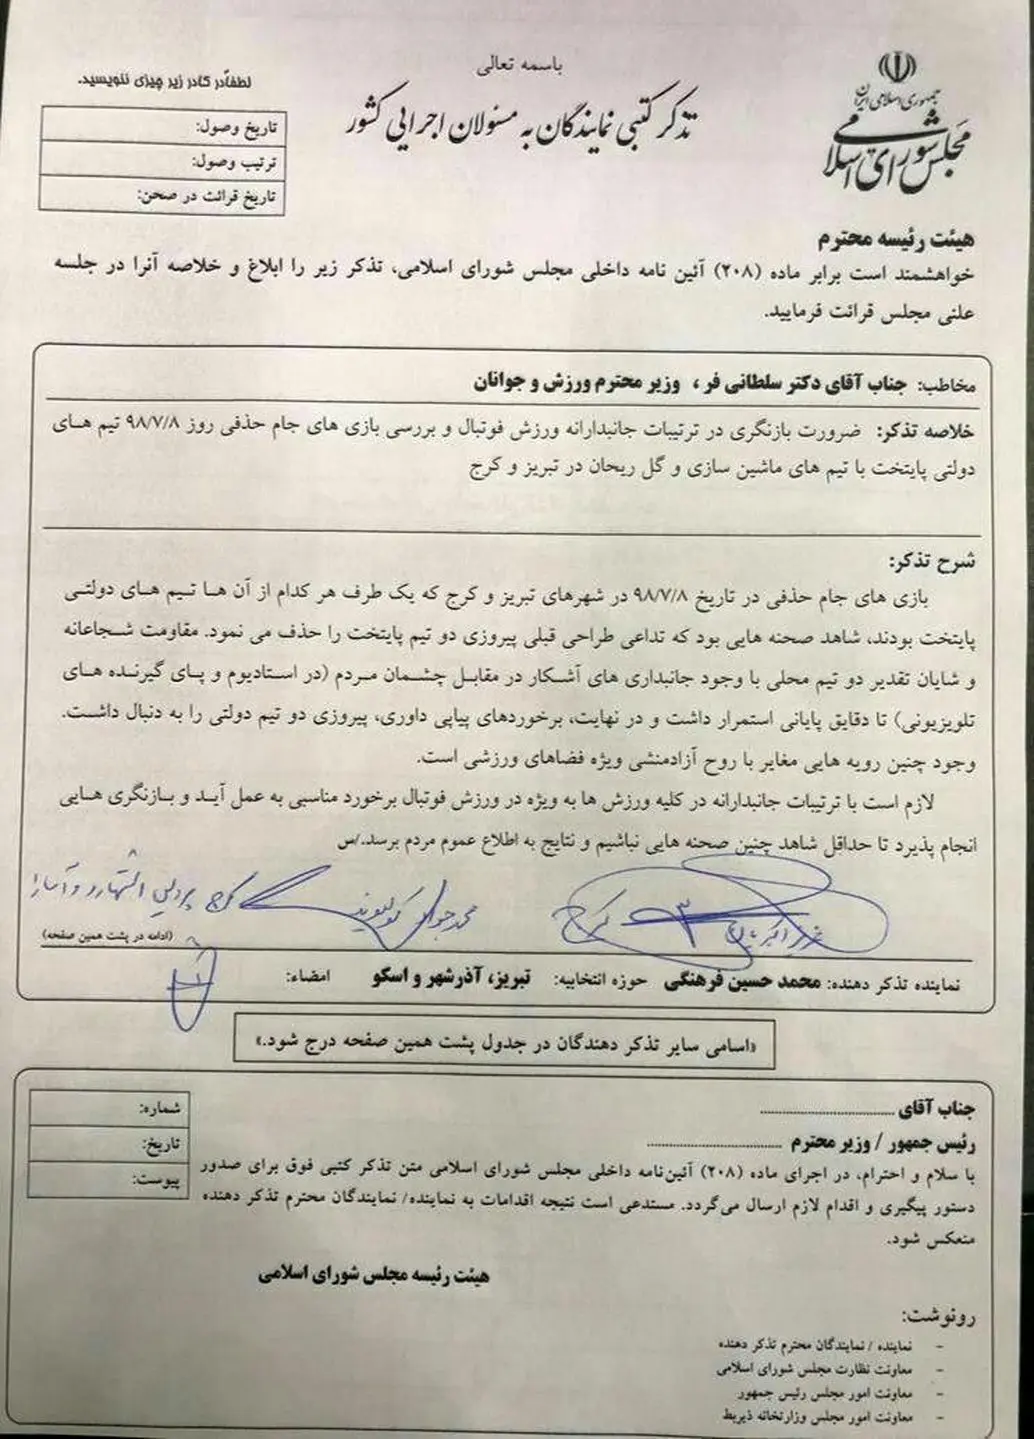 باسمه تعالی
جمهوری اسلامی ایران
مجلس شورای اسلامی
تذکر کتبی نمایندگان به مسئولان اجرایی کشور
لطفاً در کادر زیر چیزی ننویسید.
تاریخ وصول:
ترتیب وصول:
تاریخ قرائت در صحن:
هیئت رئیسه محترم
خواهشمند است برابر ماده (۲۰۸) آئین نامه داخلی مجلس شورای اسلامی، تذکر زیر را ابلاغ و خلاصه آنرا در جلسه
علنی مجلس قرائت فرمایید.
مخاطب: جناب آقای دکتر سلطانی فر ، وزیر محترم ورزش و جوانان
خلاصه تذکر: ضرورت بازنگری در ترتیبات جانبدارانه ورزش فوتبال و بررسی بازی های جام حذفی روز ۹۸/۷/۸ تیم های
دولتی پایتخت با تیم های ماشین سازی و گل ریحان در تبریز و کرج
شرح تذکر:
بازی های جام حذفی در تاریخ ۹۸/۷/۸ در شهرهای تبریز و کرج که یک طرف هر کدام از آن ها تیم های دولتی
پایتخت بودند، شاهد صحنه هایی بود که تداعی طراحی قبلی پیروزی دو تیم پایتخت را حذف می نمود. مقاومت شجاعانه
و شایان تقدیر دو تیم محلی با وجود جانبداری های آشکار در مقابل چشمان مردم (در استادیوم و پای گیرنده های
تلویزیونی) تا دقایق پایانی استمرار داشت و در نهایت، برخوردهای پیاپی داوری، پیروزی دو تیم دولتی را به دنبال داشت.
وجود چنین رویه هایی مغایر با روح آزادمنشی ویژه فضاهای ورزشی است.
لازم است با ترتیبات جانبدارانه در کلیه ورزش ها به ویژه در ورزش فوتبال برخورد مناسبی به عمل آید و بازنگری هایی
انجام پذیرد تا حداقل شاهد چنین صحنه هایی نباشیم و نتایج به اطلاع عموم مردم برسد./س
کرج
محمدجواد کولیوند کرج فردیس اشتهارد و آسارا
(ادامه در پشت همین صفحه)
نماینده تذکر دهنده: محمد حسین فرهنگی حوزه انتخابیه: تبریز، آذرشهر و اسکو امضاء:
«اسامی سایر تذکر دهندگان در جدول پشت همین صفحه درج شود.»
جناب آقای ..............................
رئیس جمهور / وزیر محترم ..............................
شماره:
تاریخ:
پیوست:
با سلام و احترام، در اجرای ماده (۲۰۸) آئین‌نامه داخلی مجلس شورای اسلامی متن تذکر کتبی فوق برای صدور
دستور پیگیری و اقدام لازم ارسال می‌گردد. مستدعی است نتیجه اقدامات به نماینده/ نمایندگان محترم تذکر دهنده
منعکس شود.
هیئت رئیسه مجلس شورای اسلامی
رونوشت:
- نماینده / نمایندگان محترم تذکر دهنده
- معاونت نظارت مجلس شورای اسلامی
- معاونت امور مجلس رئیس جمهور
- معاونت امور مجلس وزارتخانه ذیربط